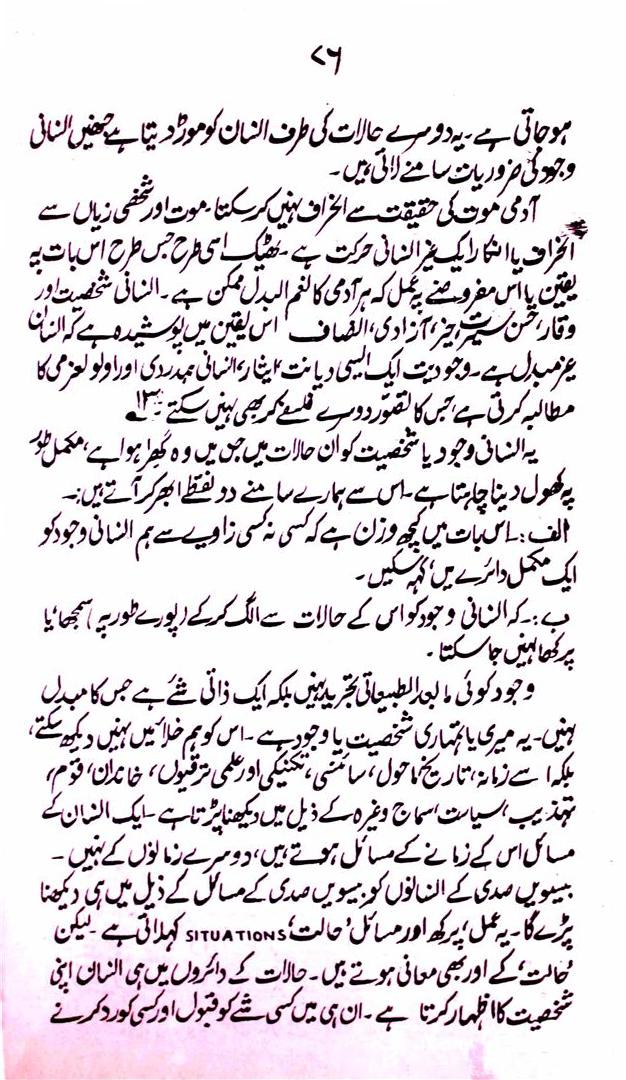 ۷۶
ہوجاتی ہے۔ یہ دوسرے حالات کی طرف انسان کو موڑ دیتا ہے جنھیں انسانی
وجود کی ضروریات سامنے لاتی ہیں۔
آدمی موت کی حقیقت سے انحراف نہیں کرسکتا۔ موت اور شخصی زیاں سے
انحراف یا انکار ایک غیر انسانی حرکت ہے۔ ٹھیک اسی طرح جس طرح اس بات پہ
یقین یا اس مفروضے پہ عمل کہ ہر آدمی کا نعم البدل ممکن ہے۔ انسانی شخصیت اور
وقار، حسن سیرت، خیر، آزادی، انصاف اس یقین میں پوشیدہ ہے کہ انسان
غیر مبدل ہے۔ وجودیت ایک ایسی دیانت، ایثار، انسانی ہمدردی اور اولوالعزمی کا
مطالبہ کرتی ہے، جس کا تصور دوسرے فلسفے کر بھی نہیں سکتے۔ ۱۳
یہ انسانی وجود یا شخصیت کو ان حالات میں جن میں وہ گھرا ہوا ہے، مکمل طور
پہ کھول دینا چاہتا ہے۔ اس سے ہمارے سامنے دو نقطے ابھر کر آتے ہیں:۔
الف:۔ اس بات میں کچھ وزن ہے کہ کسی نہ کسی زاویے سے ہم انسانی وجود کو
ایک مکمل دائرے میں، کہہ سکیں۔
ب:۔ کہ انسانی وجود کو اس کے حالات سے الگ کرکے (پورے طور پہ) سمجھا، یا
پرکھا نہیں جاسکتا۔
وجود کوئی مابعد الطبیعاتی تجرید نہیں بلکہ ایک ذاتی شئے ہے جس کا مبدل
نہیں۔ یہ میری یا تمہاری شخصیت یا وجود ہے۔ اس کو ہم خلا میں نہیں دیکھ سکتے،
بلکہ اسے زمانہ، تاریخ، ماحول، سائنسی، تکنیکی اور علمی ترقیوں، خاندان، قوم،
تہذیب، سیاست، سماج وغیرہ کے ذیل میں دیکھنا پڑتا ہے۔ ایک انسان کے
مسائل اس کے زمانے کے مسائل ہوتے ہیں، دوسرے زمانوں کے نہیں۔
بیسویں صدی کے انسانوں کو، بیسویں صدی کے مسائل کے ذیل میں ہی دیکھنا
پڑے گا۔ یہ عمل، پرکھ اور مسائل 'حالت' SITUATIONS کہلاتی ہے۔ لیکن
'حالت' کے اور بھی معانی ہوتے ہیں۔ حالات کے دائروں میں ہی انسان اپنی
شخصیت کا اظہار کرتا ہے۔ ان ہی میں کسی شے کو قبول اور کسی کو رد کرنے